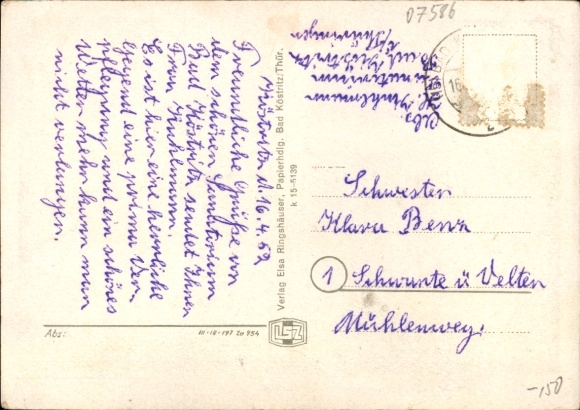 07586
Abs.
H. Kuhlmann
Sanatorium
Bad Köstritz
Thüringen
16
Köstritz d. 16.4.59
Freundliche Grüße von
dem schönen Sanatorium
Bad Köstritz sendet Ihnen
Frau Kuhlmann.
Es ist hier eine herrliche
Gegend eine prima Ver-
pflegung und ein schönes
Wetter mehr kann man
nicht verlangen.
Verlag Elsa Ringshäuser, Papierhdlg. Bad Köstritz/Thür.
k 15-5139
Schwester
Klara Benz
1 Schwante ü Velten
Mühlenweg.
Abs:
III-18-197 Zo 954
-,50